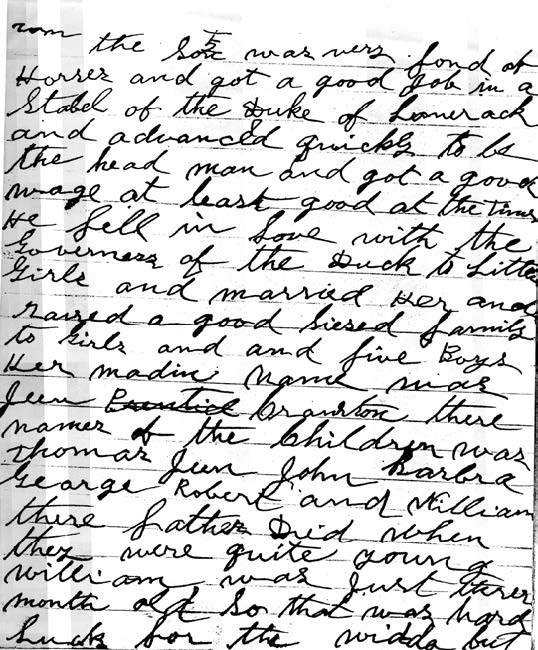 rom the Son was very fond of
Horses and got a good Job in a
Stabel of the Duke of Limerack
and advanced quickly to be
the head man and got a good
wage at least good at the times
He fell in Love with the
Governess of the Duck to Little
Girls and married Her and
raized a good siesed family
to Girls and and five Boys
Her madin name was
Jeen Prentice Cranston there
names of the Children was
Thomas Jeen John Barbra
George Robert and William
there father Died when
they were quite young
William was Just threr
month old So that was hard
Luck for the widda but